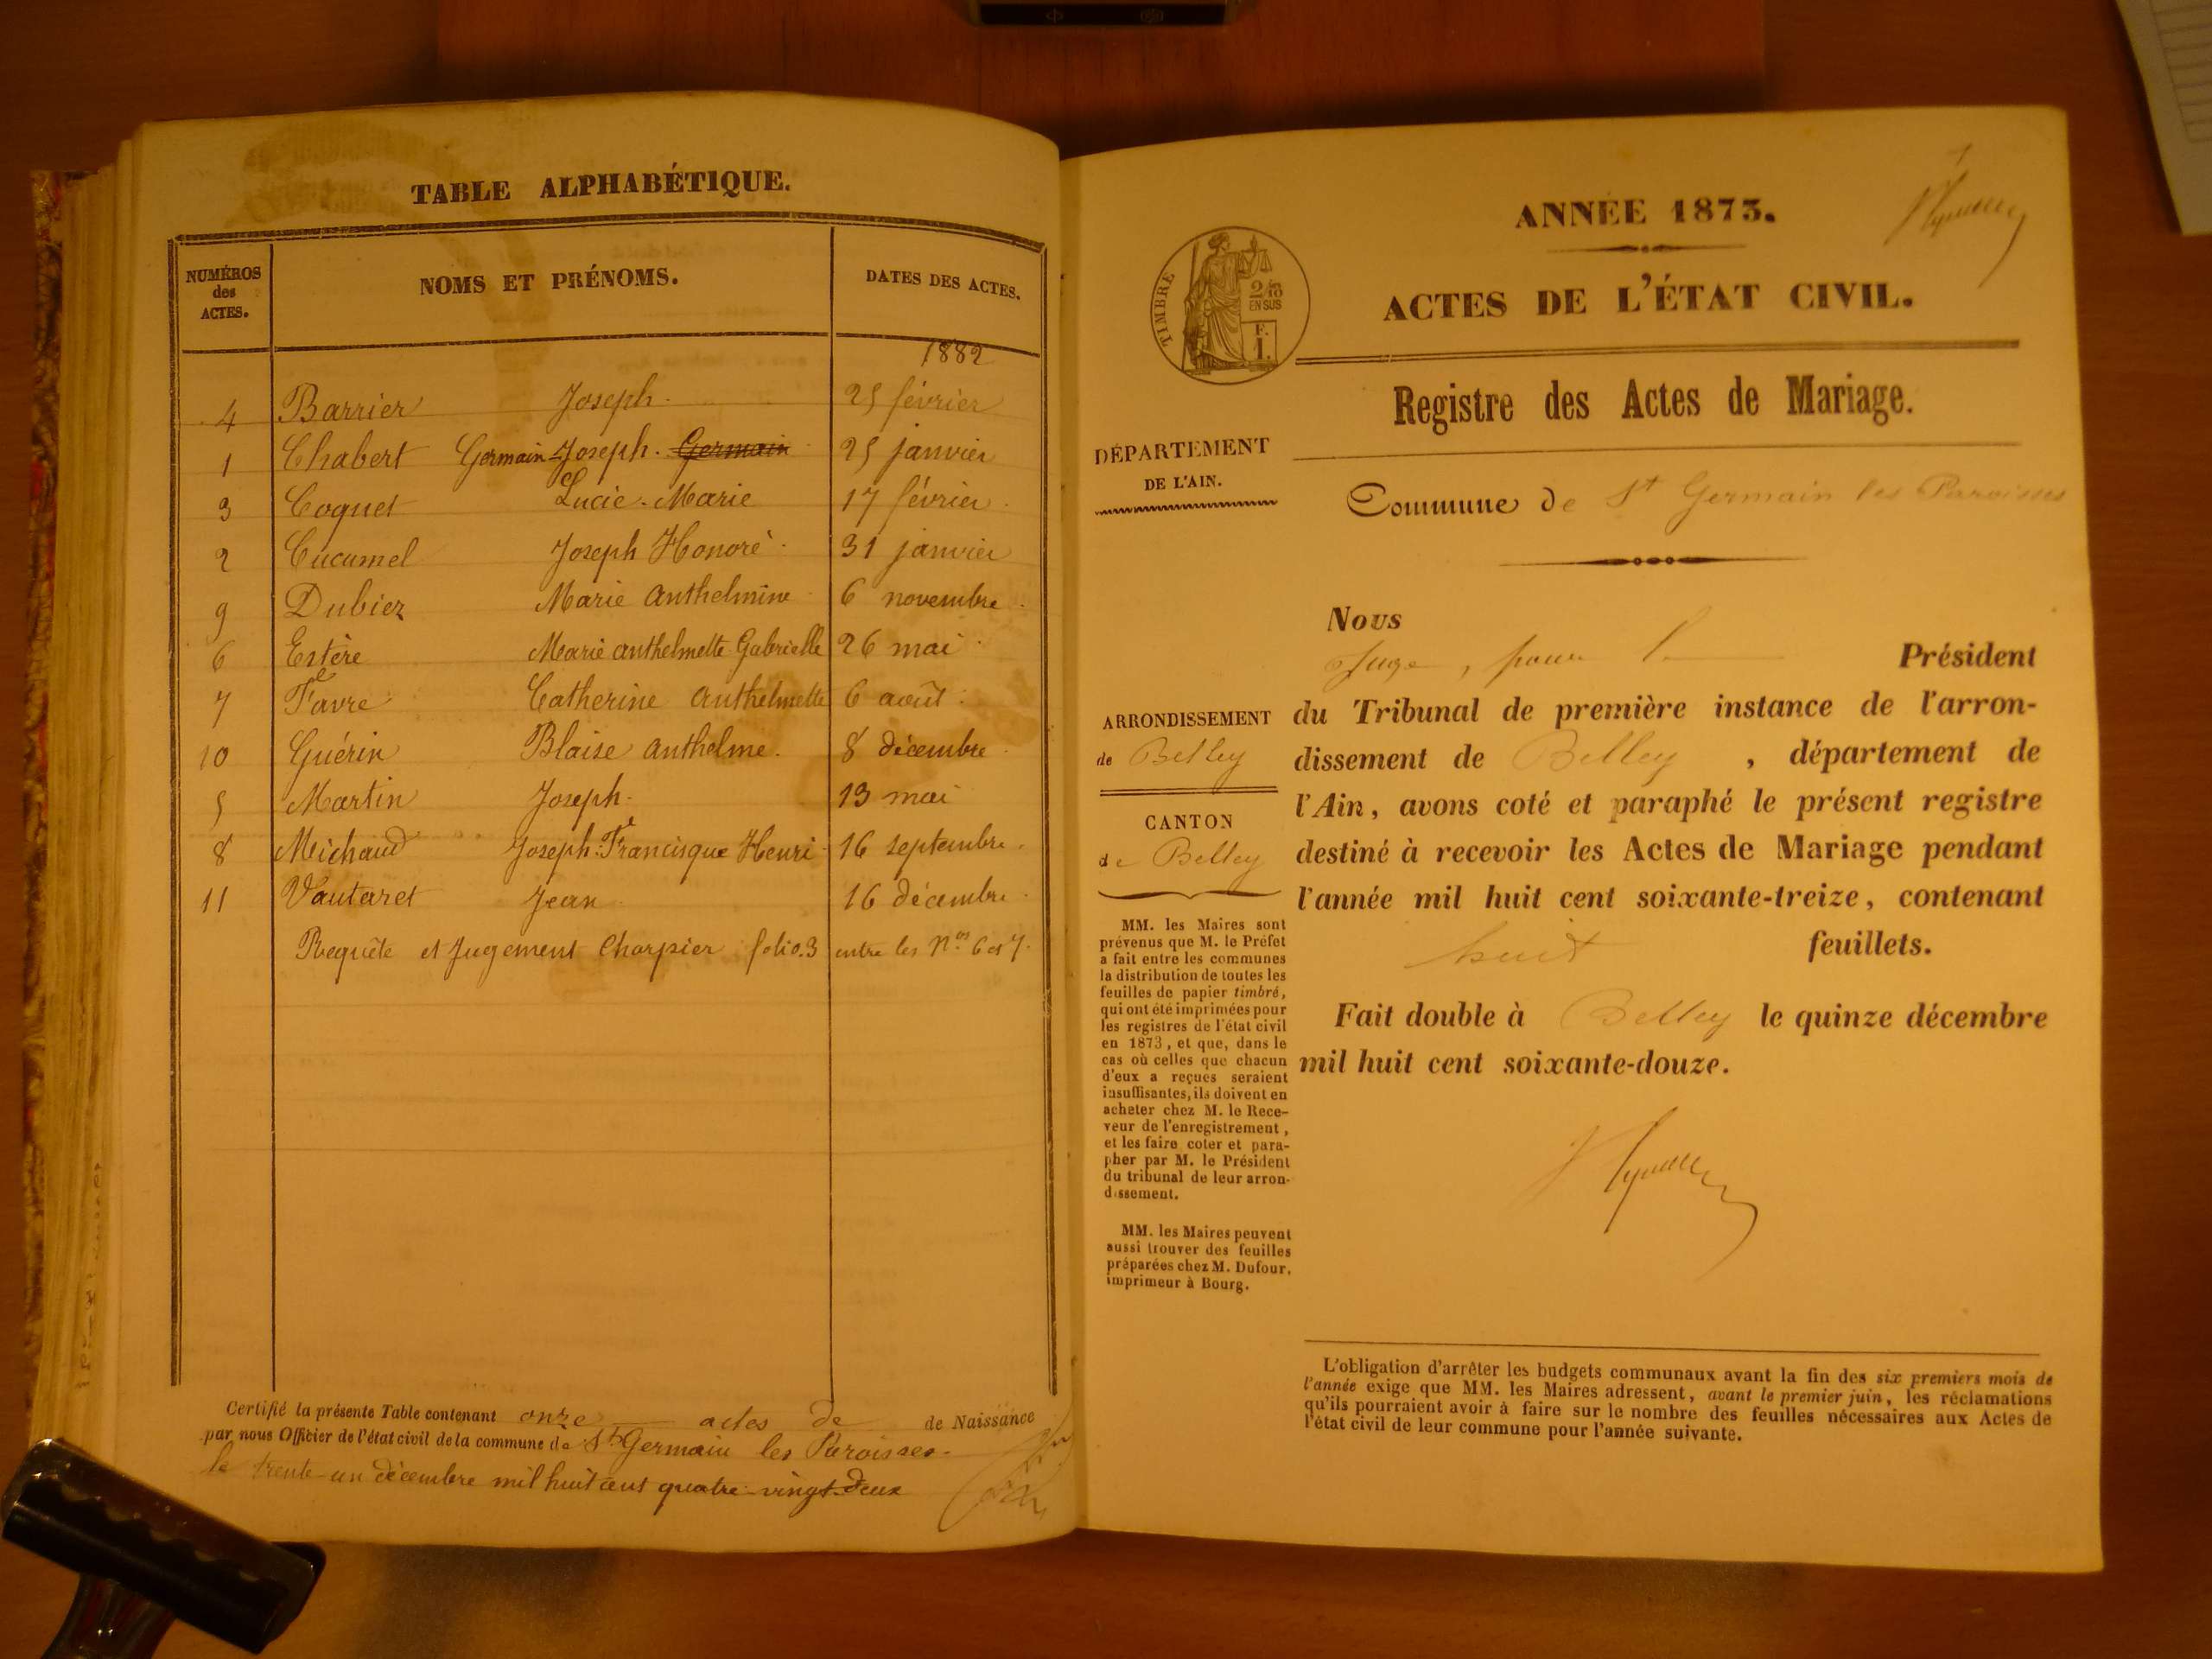 TABLE ALPHABÉTIQUE.
NUMÉROS des ACTES.
NOMS ET PRÉNOMS.
DATES DES ACTES.
1882
4 Barrier Joseph. 25 février
1 Chabert Germain-Joseph. Germain 25 janvier
3 Coquet Lucie-Marie 17 février
2 Cucumel Joseph Honoré 31 janvier
9 Dubiez Marie Anthelmine 6 novembre
6 Estère Marie Anthelmette Gabrielle 26 mai
7 Favre Catherine Anthelmette 6 août
10 Guérin Blaise Anthelme. 8 décembre
5 Martin Joseph. 13 mai
8 Michaud Joseph-Francisque Henri 16 septembre
11 Vautaret Jean 16 décembre
Requête et Jugement Charpier folio.3 entre les Nos 6 et 7.
Certifié la présente Table contenant onze actes de de Naissance
par nous Officier de l'état civil de la commune de St Germain les Paroisses
le trente-un décembre mil huit cent quatre-vingt-deux
ANNÉE 1873.
ACTES DE L'ÉTAT CIVIL.
TIMBRE
2/10
EN SUS
F.
1.
Registre des Actes de Mariage.
DÉPARTEMENT
DE L'AIN.
Commune de St Germain les Paroisses
ARRONDISSEMENT
de Belley
CANTON
de Belley
MM. les Maires sont
prévenus que M. le Préfet
a fait entre les communes
la distribution de toutes les
feuilles de papier timbré,
qui ont été imprimées pour
les registres de l'état civil
en 1873, et que, dans le
cas où celles que chacun
d'eux a reçues seraient
insuffisantes, ils doivent en
acheter chez M. le Rece-
veur de l'enregistrement,
et les faire coter et para-
pher par M. le Président
du tribunal de leur arron-
dissement.
MM. les Maires peuvent
aussi trouver des feuilles
préparées chez M. Dufour,
imprimeur à Bourg.
Nous
Juge, pour le Président
du Tribunal de première instance de l'arron-
dissement de Belley, département de
l'Ain, avons coté et paraphé le présent registre
destiné à recevoir les Actes de Mariage pendant
l'année mil huit cent soixante-treize, contenant
huit feuillets.
Fait double à Belley le quinze décembre
mil huit cent soixante-douze.
L'obligation d'arrêter les budgets communaux avant la fin des six premiers mois de
l'année exige que MM. les Maires adressent, avant le premier juin, les réclamations
qu'ils pourraient avoir à faire sur le nombre des feuilles nécessaires aux Actes de
l'état civil de leur commune pour l'année suivante.